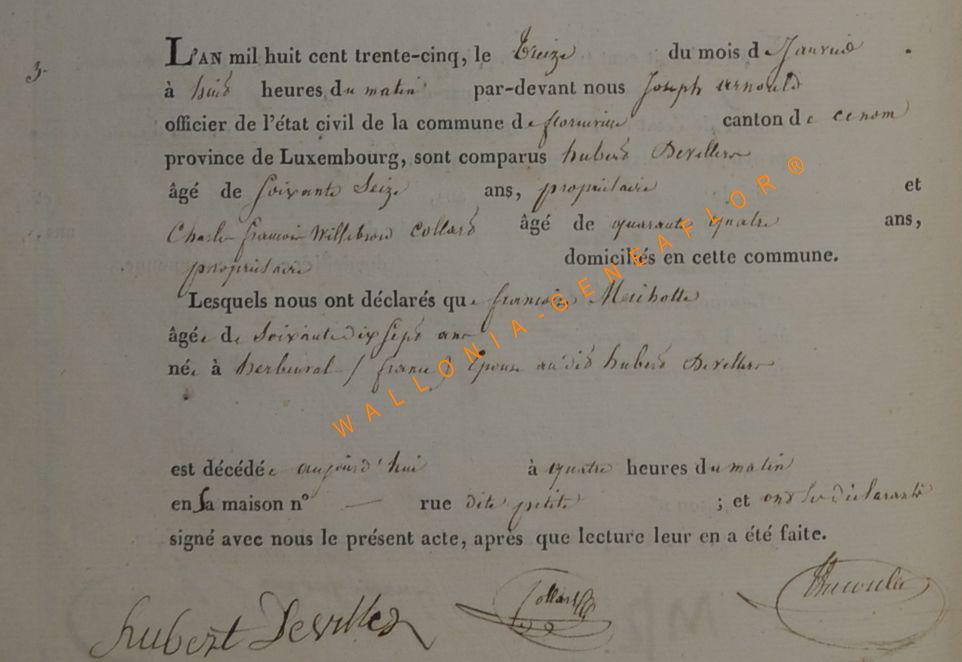 3.
L'AN mil huit cent trente-cinq, le treize du mois de Janvier
à huit heures du matin par-devant nous Joseph arnould
officier de l'état civil de la commune de florenville canton de
province de Luxembourg, sont comparus hubert Devillers
âgé de soixante Seize ans, propriétaire et
Charle francois Willibrord Collard âgé de quarante quatre ans,
propriétaire domiciliés en cette commune.
Lesquels nous ont déclarés que francoise
âgée de Soixante dix sept ans
née à herbeuval / france / Epouse au dit hubert Devillers
est décédée aujourd'hui à quatre heures du matin
en sa maison n° — rue dite petite ; et ont les déclarants
signé avec nous le présent acte, après que lecture leur en a été faite.
hubert Devilles Collard
WALLONIA-GENEAFLOR®